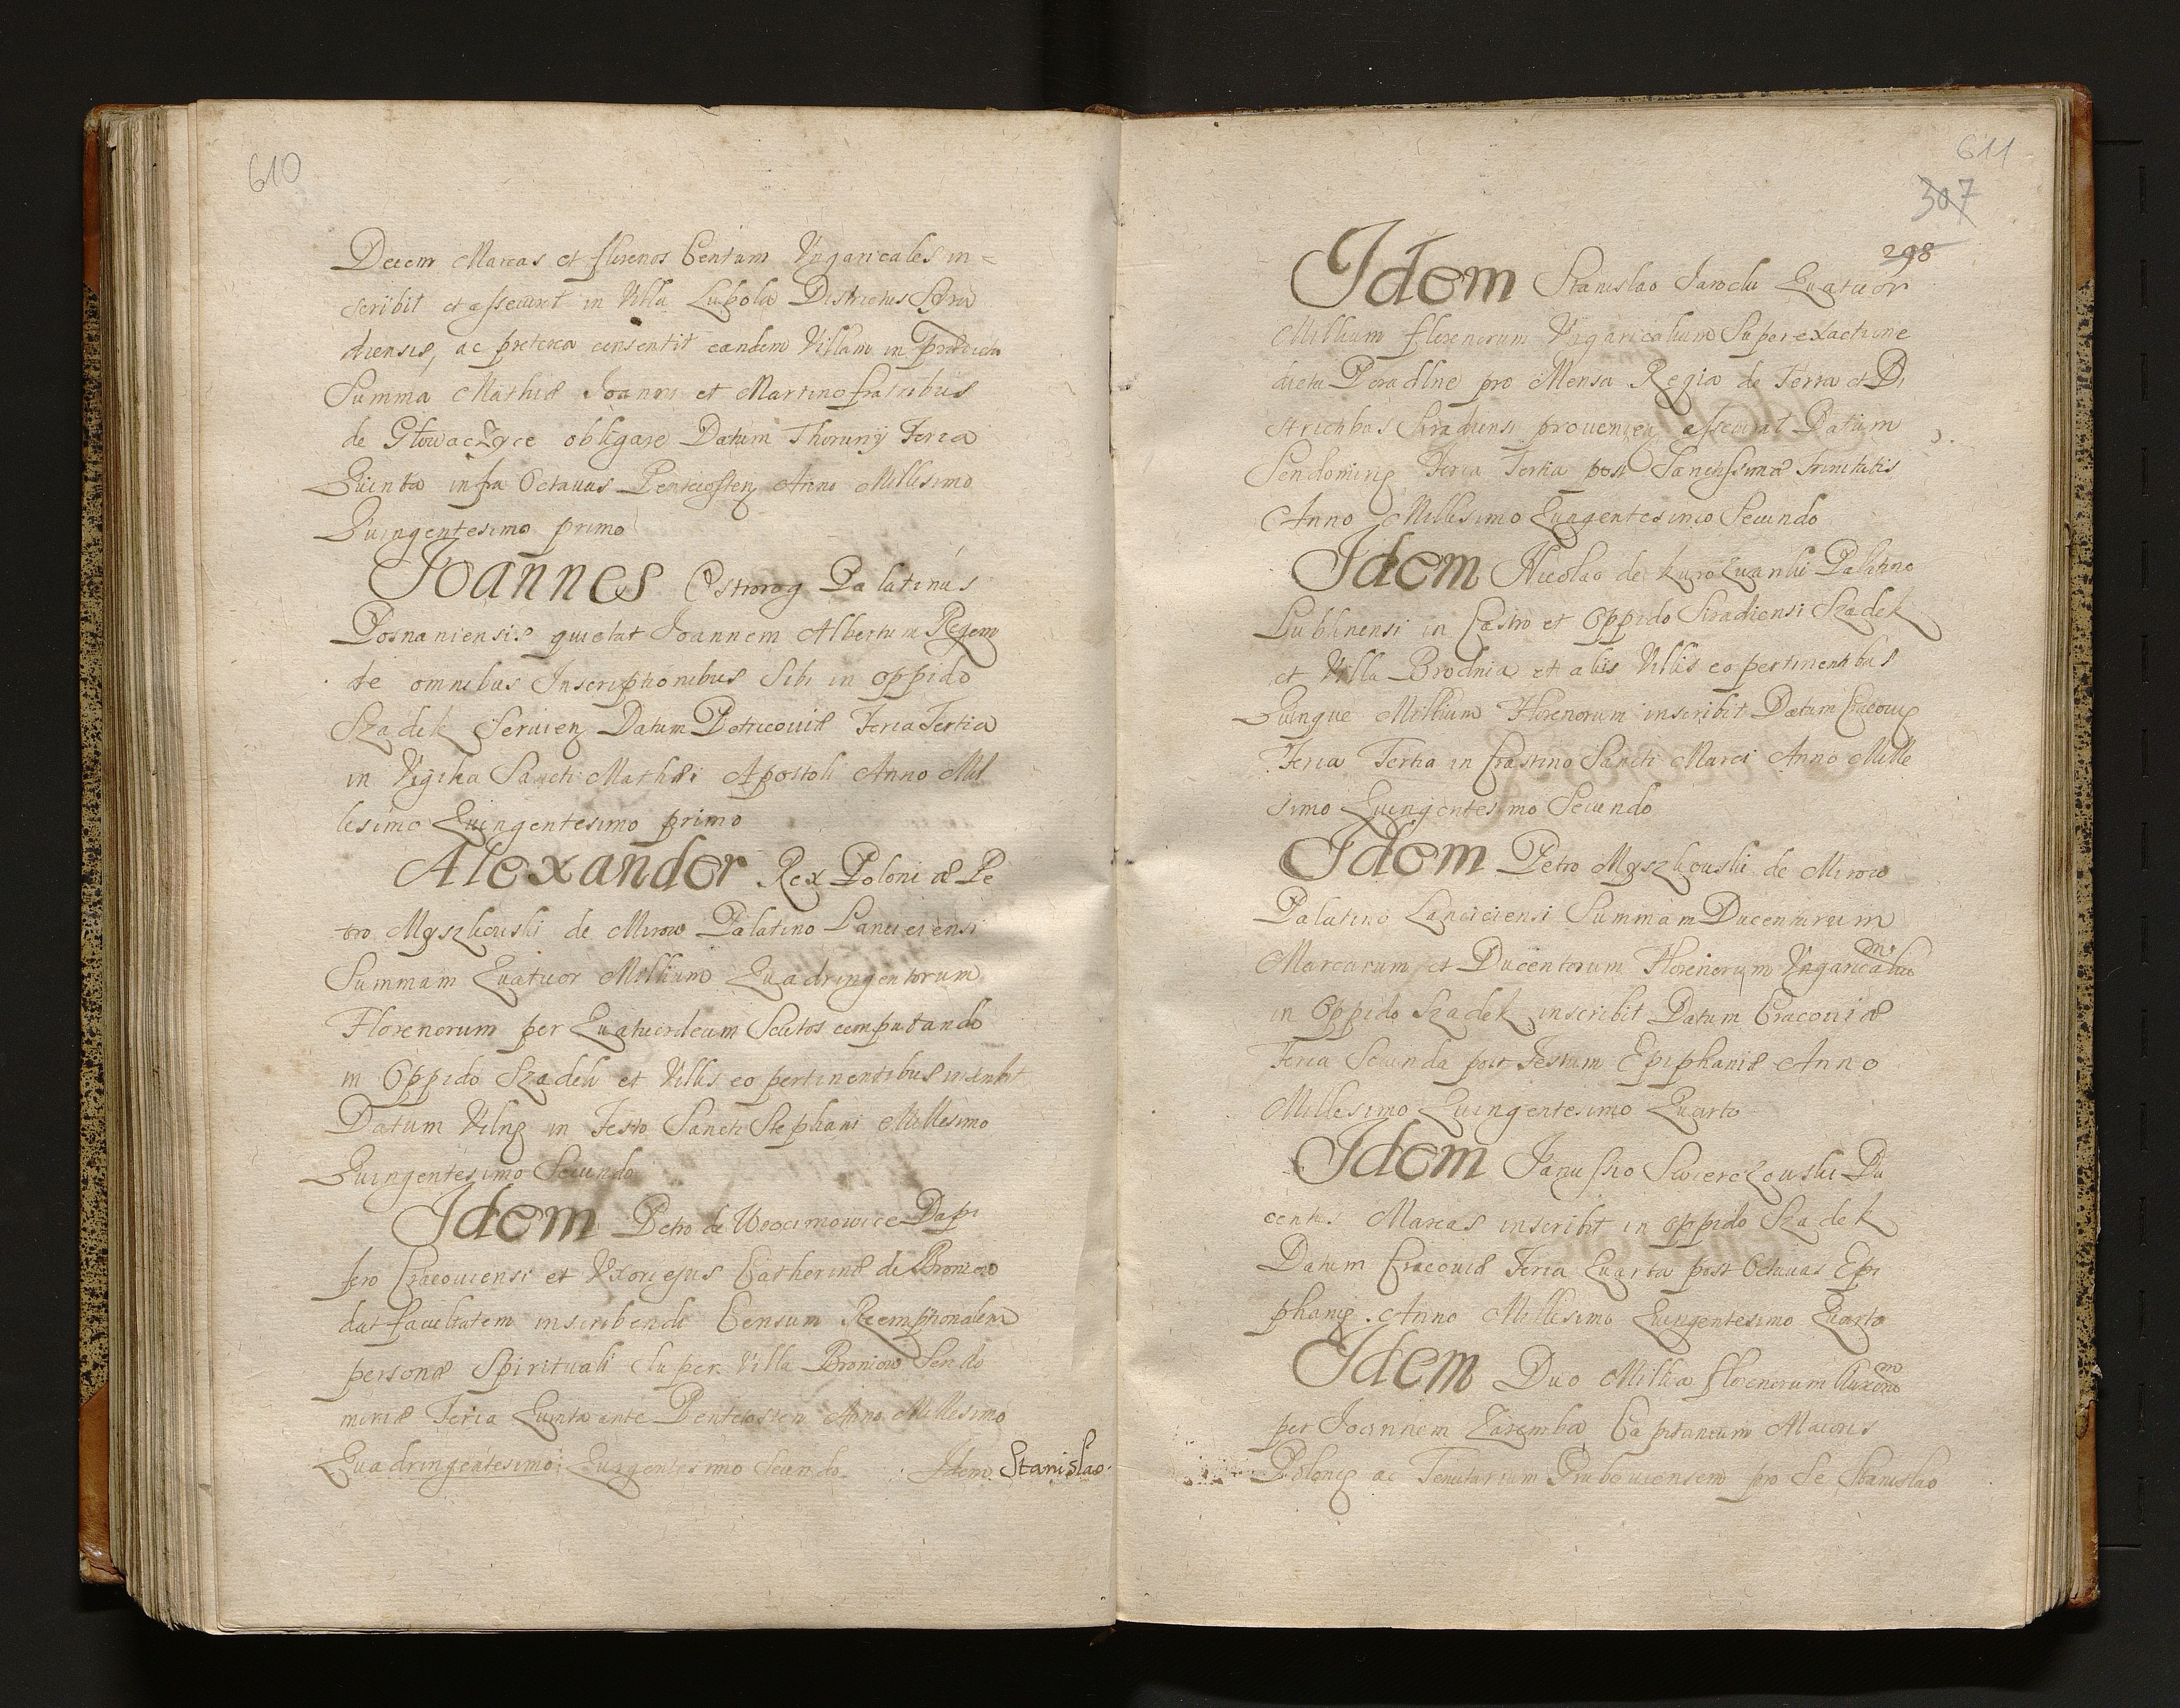 610
Decem Marcas et florenos Centum Ungaricales in=
scribit et assecurat in Villa Lubola Districtus Sira
diensis, ac preterea consentit eandem Villam in predicta
Summa Mathiæ Joanni et Martino fratribus
de Głowaczyce obligare Datum Thoruny Feria
Quinta infra Octauas Pentecosten Anno Millesimo
Quingentesimo primo
Joannes Ostrorog Palatinus
Posnaniensis quietat Joannem Albertum Regem
de omnibus Inscriptionibus Sibi in oppido
Szadek Seruien Datum Petricouiæ Feria Tertia
in Vigilia Sancti Mathæi Apostoli Anno Mil
lesimo Quingentesimo primo
Alexander Rex Poloniæ Pe
tro Myszkouski de Mirow Palatino Lanciciensi
Summam Quatuor Millium Quadringentorum
Florenorum per Quatuordecim Scutos computando
in Oppido Szadek et Villis eo pertinentibus
Datum Vilnę in Festo Sancti Stephani Millesimo
Quingentesimo Secundo
Idem Petro de Dapi
fero Cracouiensi et Uxori ejus Catherinæ de Broniow
dat facultatem inscribendi Censum Reemptionalem
personæ Spirituali super Villa Broniow Sendo
miriæ Feria Quinta ante Pentecosten Anno Millesimo
Quadringentesimo Quingentesimo Secundo Idem Stanislao
611
307
298
Idem Stanislao Jarocki Quatuor
Millium florenorum Ungaricalium Super exactione
dicta Poradlne pro Mensa Regia de Terra et Di
strictibus Siradiensi prouenien assecurat Datum
Sendomirię Feria Tertia post Sanctissimæ Trinitatis
Anno Millesimo Quingentesimo Secundo
Idem Nicolao de Kurozwanki Palatino
Lublinensi in Castro et Oppido Siradiensi Szadek
et Villa Brodnia et aliis Villis eo pertinentibus
Quinque Millium Florenorum inscribit Datum Cracouię
Feria Tertia in Crastino Sancti Marci Anno Mille
simo Quingentesimo Secundo
Idem Petro Myszkouski de Mirow
Palatino Lanciciensi Summam Ducentarum
Marcarum et Ducentorum Florenorum Ungaricaliu m
in Oppido Szadek inscribit Datum Cracouiæ
Feria Secunda post Festum Epiphaniæ Anno
Millesimo Quingentesimo Quarto
Idem Janussio Swierczouski Du
centas Marcas inscribit in oppido Szadek
Datum Cracouiæ Feria Quarta post Octauas Epi
phanię Anno Millesimo Quingentesimo Quarto
Idem Duo Millia florenorum
per Joannem Zaremba Capitaneum Maioris
Polonię ac Tenutarium pro Se Stanislao